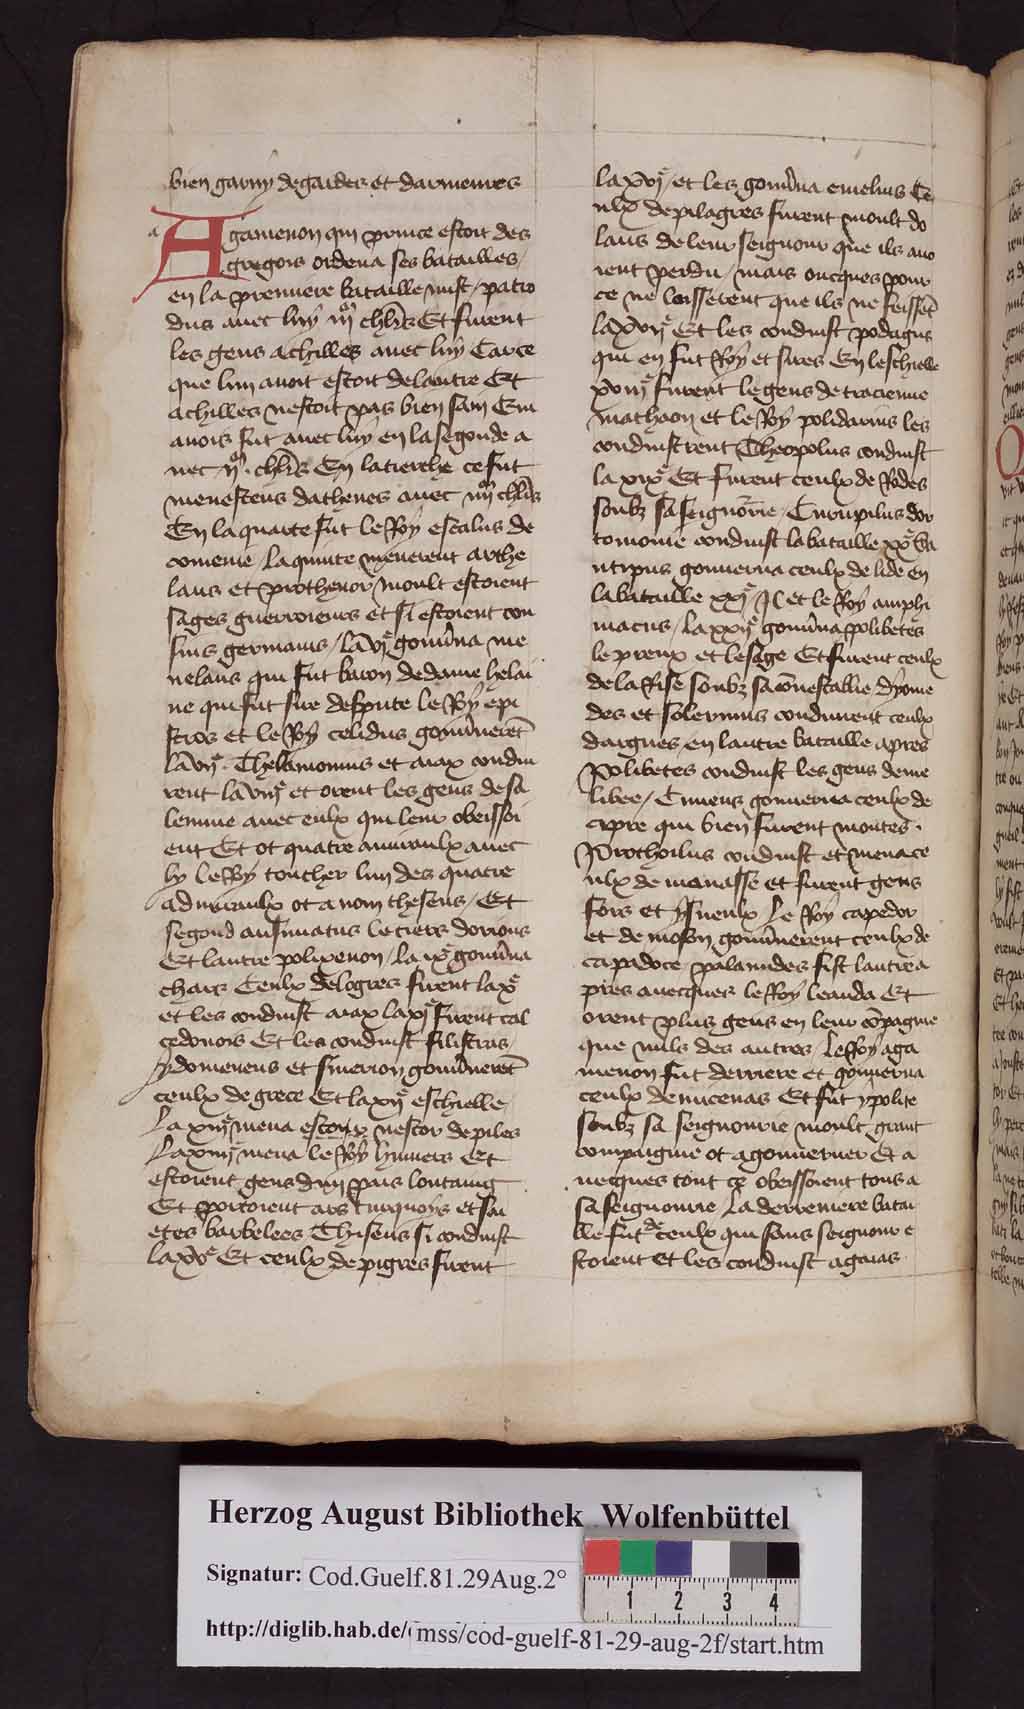 bien garny de gardes et darmeures
a
Agamenon qui prince estoit des
gregois ordena ses batailles /
en la premiere bataille mist / patro
clus auec luy iiiM chlrs Et furent
les gens achilles auec luy Car ce
que lun auoit estoit de lautre Et
achilles nestoit pas bien sain Em
auois fut auec luy en la segonde a
uec iiM. chlrs En la tierche ce fut
menesteus dathenes auec iiiiM chlrs
En la quarte fut le Roy escalus de
comenie / la quinte menerent arche
laus et prothenor moult estoient
sages guerroieurs et si estoient cou
sins germains / la vje gouuna me
nelaus qui fut baron de dame helai
ne qui fut sue despute le Roy epi
stros et le Roy celidus gouunerent
la vije. Thelamonius et aiax condui
rent la viije et orent les gens de sa
lemine auec eulx qui leur obeissoi
ent Et ot quatre amiraulx auec
ly le Roy toucher lun des quatre
admiraulx ot a nom theseus / Et
segond ansimatus le tiers dorious
Et lautre polixenon / la ixe gouuna
chais Ceulx de logres furent la xe
et les conduist aiax la xje furent cal
cedonois Et les conduist filistras /
ydomeneus et smerion gouunerent
ceulx de grece Et la xije eschielle
La xiije mena nestor de piles
La xiiije mena le Roy huniers Et
estoient gens dun pais lontaing
Et portoient ars turquoys et sai
etes barbelees Thiseus si conduist
la xve Et ceulx de pigres furent
la xvje / et les gouuna emelius Ce
ulx de pilagres furent moult do
lans de leur seignour que ils auo
ient perdu / mais oncques pour
ce ne laisserent que ils ne feissent
la xvije Et les conduist podagus
qui en fut Roy et sires En leschielle
xviije furent le gens de traciennie
mathaon et le Roy polidarius les
conduistrent Theopolus conduist
la xixe Et furent ceulx de Rodes
soubz sa seignorie / Curupilus dor
tomonie conduist la bataille xxe Xa
ntipus gouuerna ceulx de lide en
la bataille xxje / Il et le Roy amphi
macus / la xxije gouuna polibetes
le preux et le sage Et furent ceulx
de la Rise soubz sa conestablie dyome
des et solerinus conduirent ceulx
dargues en lautre bataille apres
Polibetes conduist les gens de me
libee / Cuneus gouuerna ceulx de
cipre qui bien furent montes.
Prothoilus conduist et mena ce
ulx de manasse et furent gens
fors et ysneulx Le Roy capedor
et de moson gouunerent ceulx de
capadoce palamides fist lautre a
pres auecques le Roy leanda Et
orent plus gens en leur compagnie
que nuls des autres / le Roy aga
menon fut derriere et gouuerna
ceulx de micenas Et fut ypolite
soubz sa seignourie moult grant
compaignie ot a gouuerner Et a
uecques tout ce obeissoient tous a
sa seignourie La derreniere batai
lle fut de ceulx qui sans seignour e
stoient Et les conduist agaias
Herzog August Bibliothek Wolfenbüttel
Signatur: Cod.Guelf.81.29Aug.2°
http://diglib.hab.de/mss/cod-guelf-81-29-aug-2f/start.htm
1 2 3 4